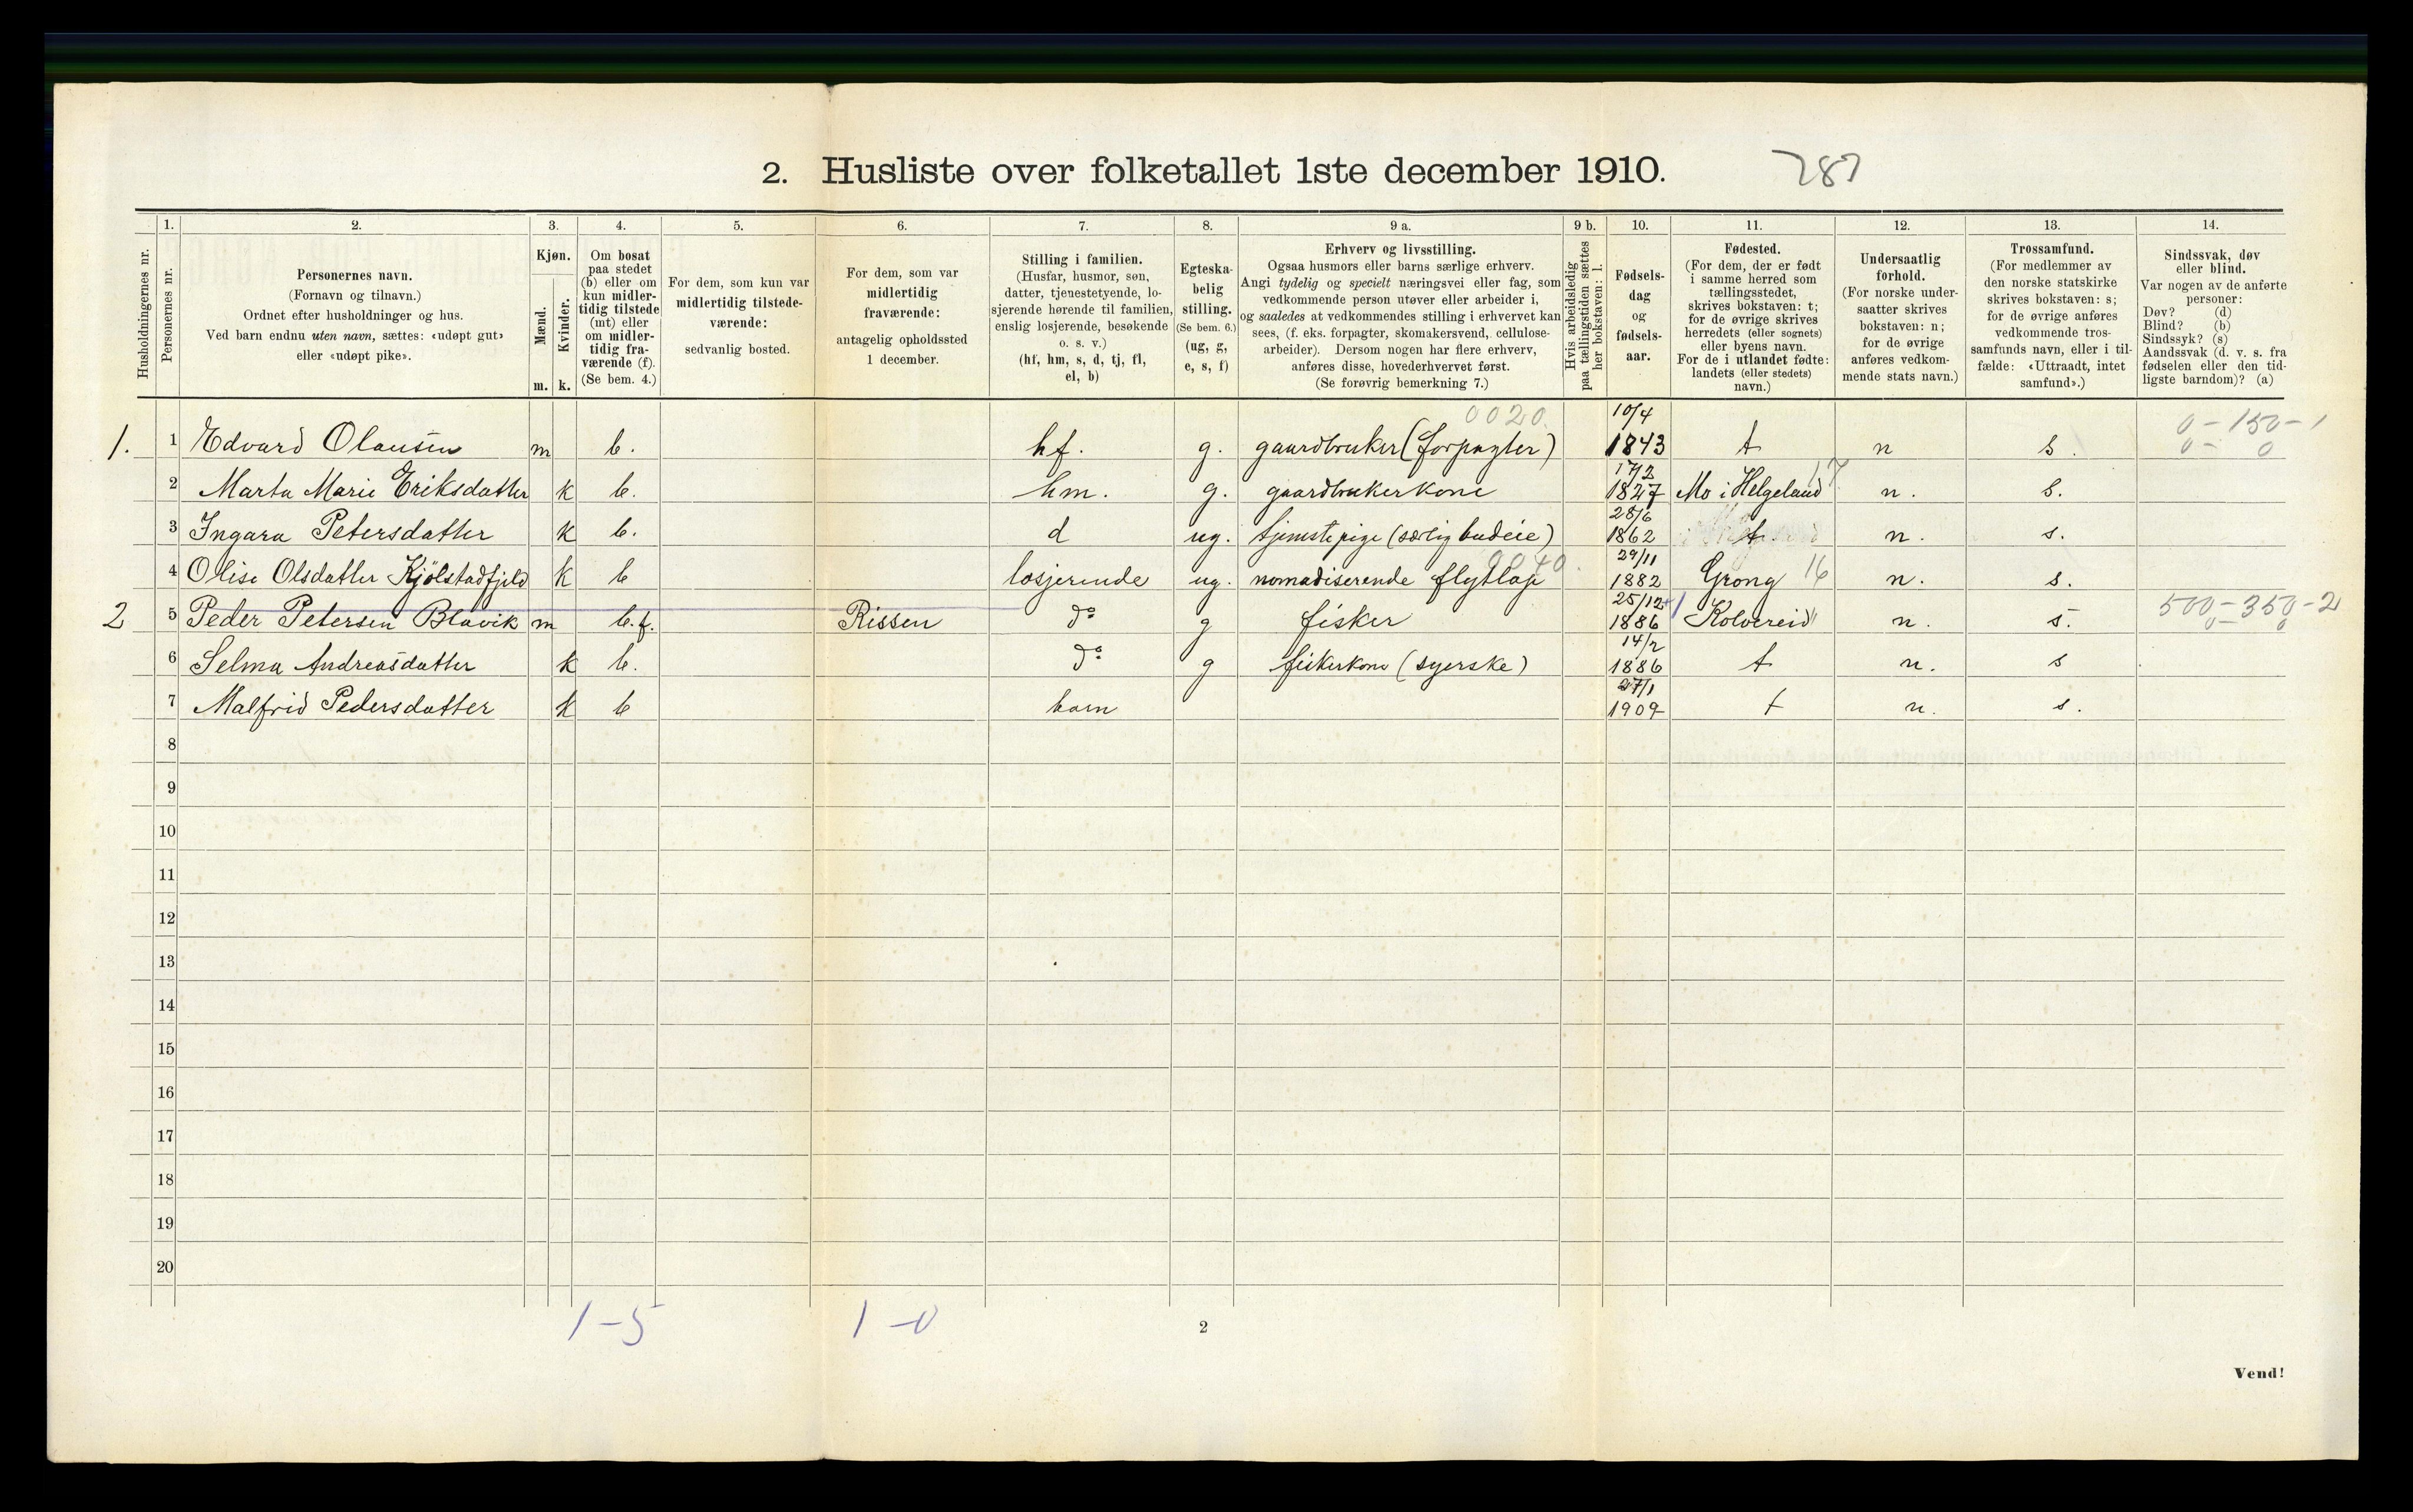 2. Husliste over folketallet 1ste december 1910. 287
1. 2. 3. 4. 5. 6. 7. 8. 9 a. 9 b. 10. 11. 12. 13. 14.
Husholdningernes nr.
Personernes nr.
Personernes navn.
(Fornavn og tilnavn.)
Ordnet efter husholdninger og hus.
Ved barn endnu uten navn, sættes: «udøpt gut»
eller «udøpt pike».
Kjøn.
Mænd.
Kvinder.
m. k.
Om bosat
paa stedet
(b) eller om
kun midler-
tidig tilstede
(mt) eller
om midler-
tidig fra-
værende (f).
(Se bem. 4.)
For dem, som kun var
midlertidig tilstede-
værende:
sedvanlig bosted.
For dem, som var
midlertidig
fraværende:
antagelig opholdssted
1 december.
Stilling i familien.
(Husfar, husmor, søn,
datter, tjenestetyende, lo-
sjerende hørende til familien,
enslig losjerende, besøkende
o. s. v.)
(hf, hm, s, d, tj, fl,
el, b)
Egteska-
belig
stilling.
(Se bem. 6.)
(ug, g,
e, s, f)
Erhverv og livsstilling.
Ogsaa husmors eller barns særlige erhverv.
Angi tydelig og specielt næringsvei eller fag, som
vedkommende person utøver eller arbeider i,
og saaledes at vedkommendes stilling i erhvervet kan
sees, (f. eks. forpagter, skomakersvend, cellulose-
arbeider). Dersom nogen har flere erhverv,
anføres disse, hovederhvervet først.
(Se forøvrig bemerkning 7.)
Hvis arbeidsledig
paa tællingstiden sættes
her bokstaven: l.
Fødsels-
dag
og
fødsels-
aar.
Fødested.
(For dem, der er født
i samme herred som
tællingsstedet,
skrives bokstaven: t;
for de øvrige skrives
herredets (eller sognets)
eller byens navn.
For de i utlandet fødte:
landets (eller stedets)
navn.)
Undersaatlig
forhold.
(For norske under-
saatter skrives
bokstaven: n;
for de øvrige
anføres vedkom-
mende stats navn.)
Trossamfund.
(For medlemmer av
den norske statskirke
skrives bokstaven: s;
for de øvrige anføres
vedkommende tros-
samfunds navn, eller i til-
fælde: «Uttraadt, intet
samfund».)
Sindssvak, døv
eller blind.
Var nogen av de anførte
personer:
Døv? (d)
Blind? (b)
Sindssyk? (s)
Aandssvak (d. v. s. fra
fødselen eller den tid-
ligste barndom)? (a)
0020. 10/4 0-150-1
1. 1 Edvard Olausen m b. hf. g. gaardbruker (forpagter) 1843 t n s. 0- 0
17/2 17
2 Marta Marie Eriksdatter k b. hm. g. gaardbrukerkone 1827 Mo i Helgeland n. s.
28/6
3 Ingara Petersdatter k b. d ug. tjenestepige (særlig budeie) 1862 t. n. s.
29/11
4 Olise Olsdatter Kjölstadfjeld k b losjerende ug. nomadiserende flytlap 1882 Grong 16 n. s.
25/12 500-350-2
2 5 Peder Petersen Blavik m b.f. Rissen do g fisker 1886 Kolvereid n. s. 0- 0
14/2
6 Selma Andreasdatter k b. do g fiskerkone (syerske) 1886 t n. s
27/1
7 Malfrid Pedersdatter k b barn 1909 t n. s.
8
9
10
11
12
13
14
15
16
17
18
19
20
1-5 1-0
2
Vend!